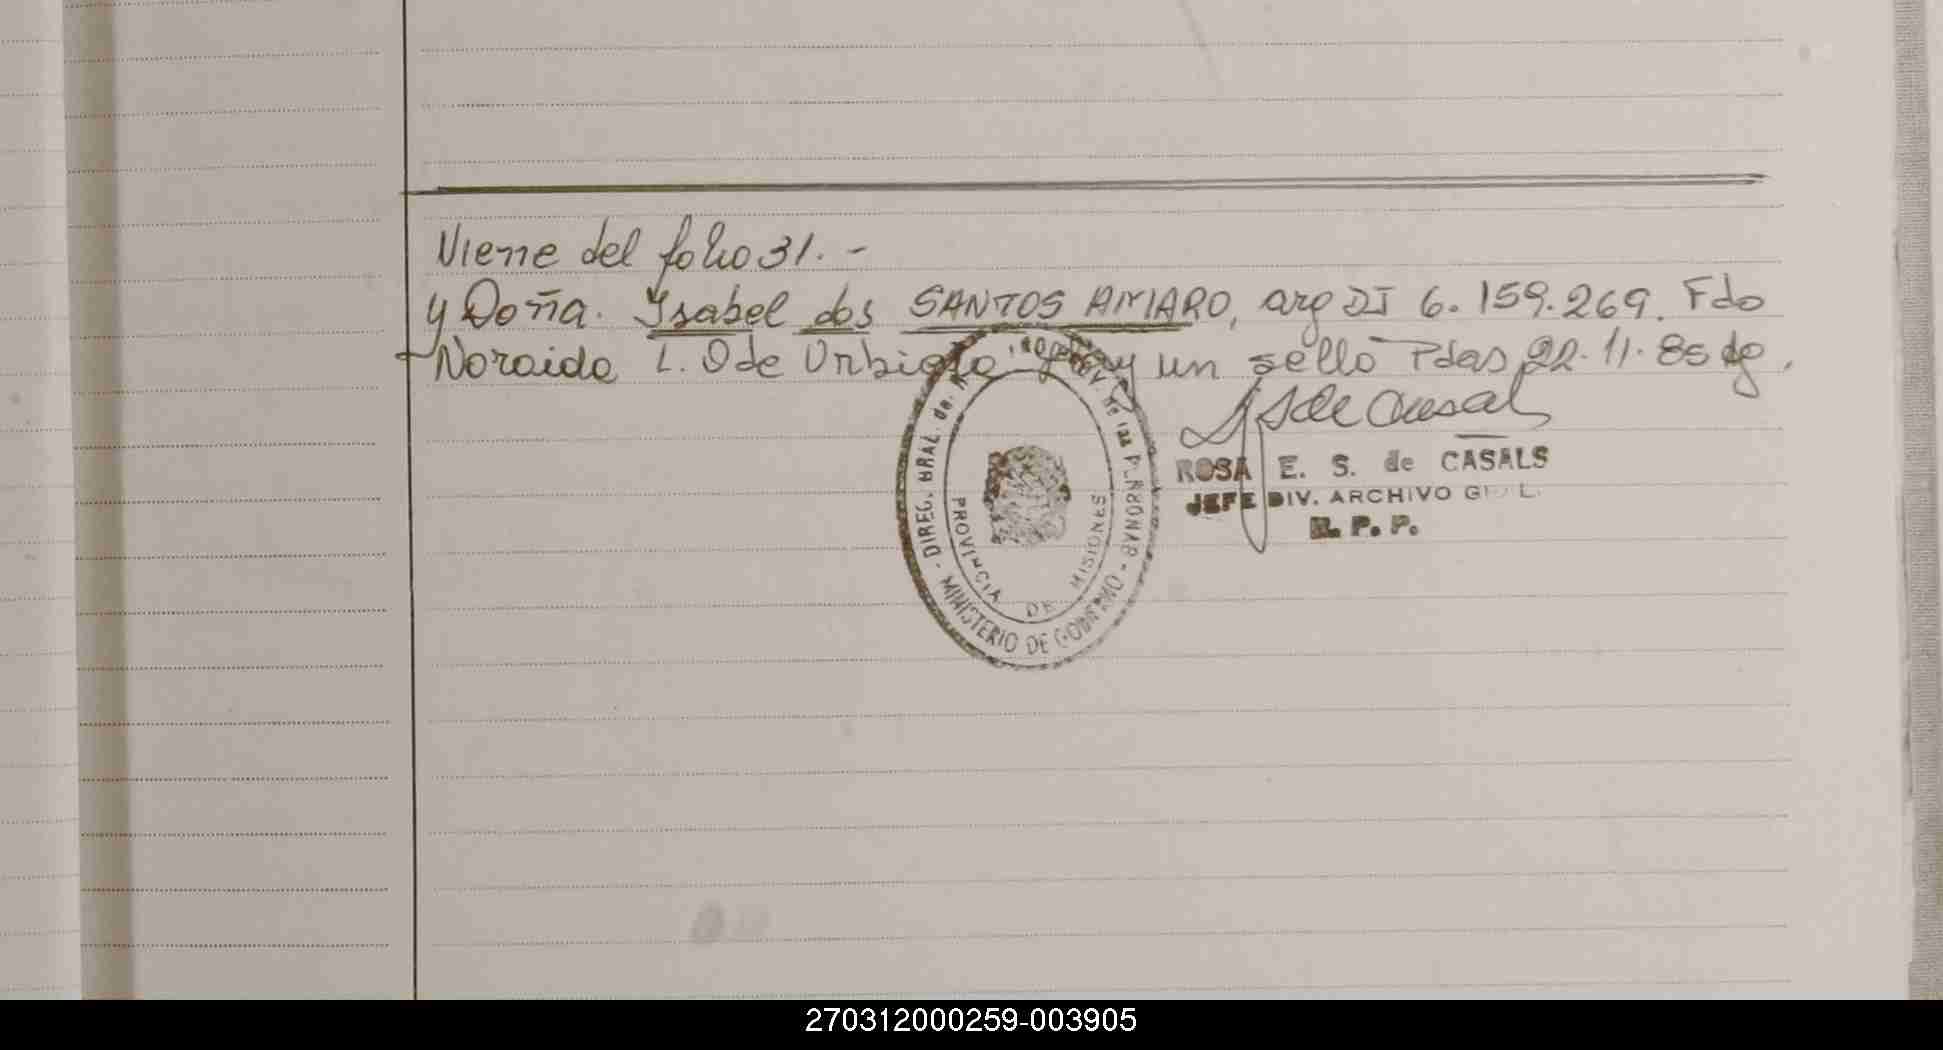 Viene del folio 31. -
y Doña. Ysabel dos SANTOS AMARO, arg DI 6.159.269. Fdo
Noraida L. O de Urbieta y un sello Pdas 22.11.85 dg.
ROSA E. S. de CASALS
JEFE DIV. ARCHIVO
R. P. P.
DIREC. GRAL. de las PERSONAS - MINISTERIO DE GOBIERNO -
PROVINCIA DE MISIONES
270312000259-003905